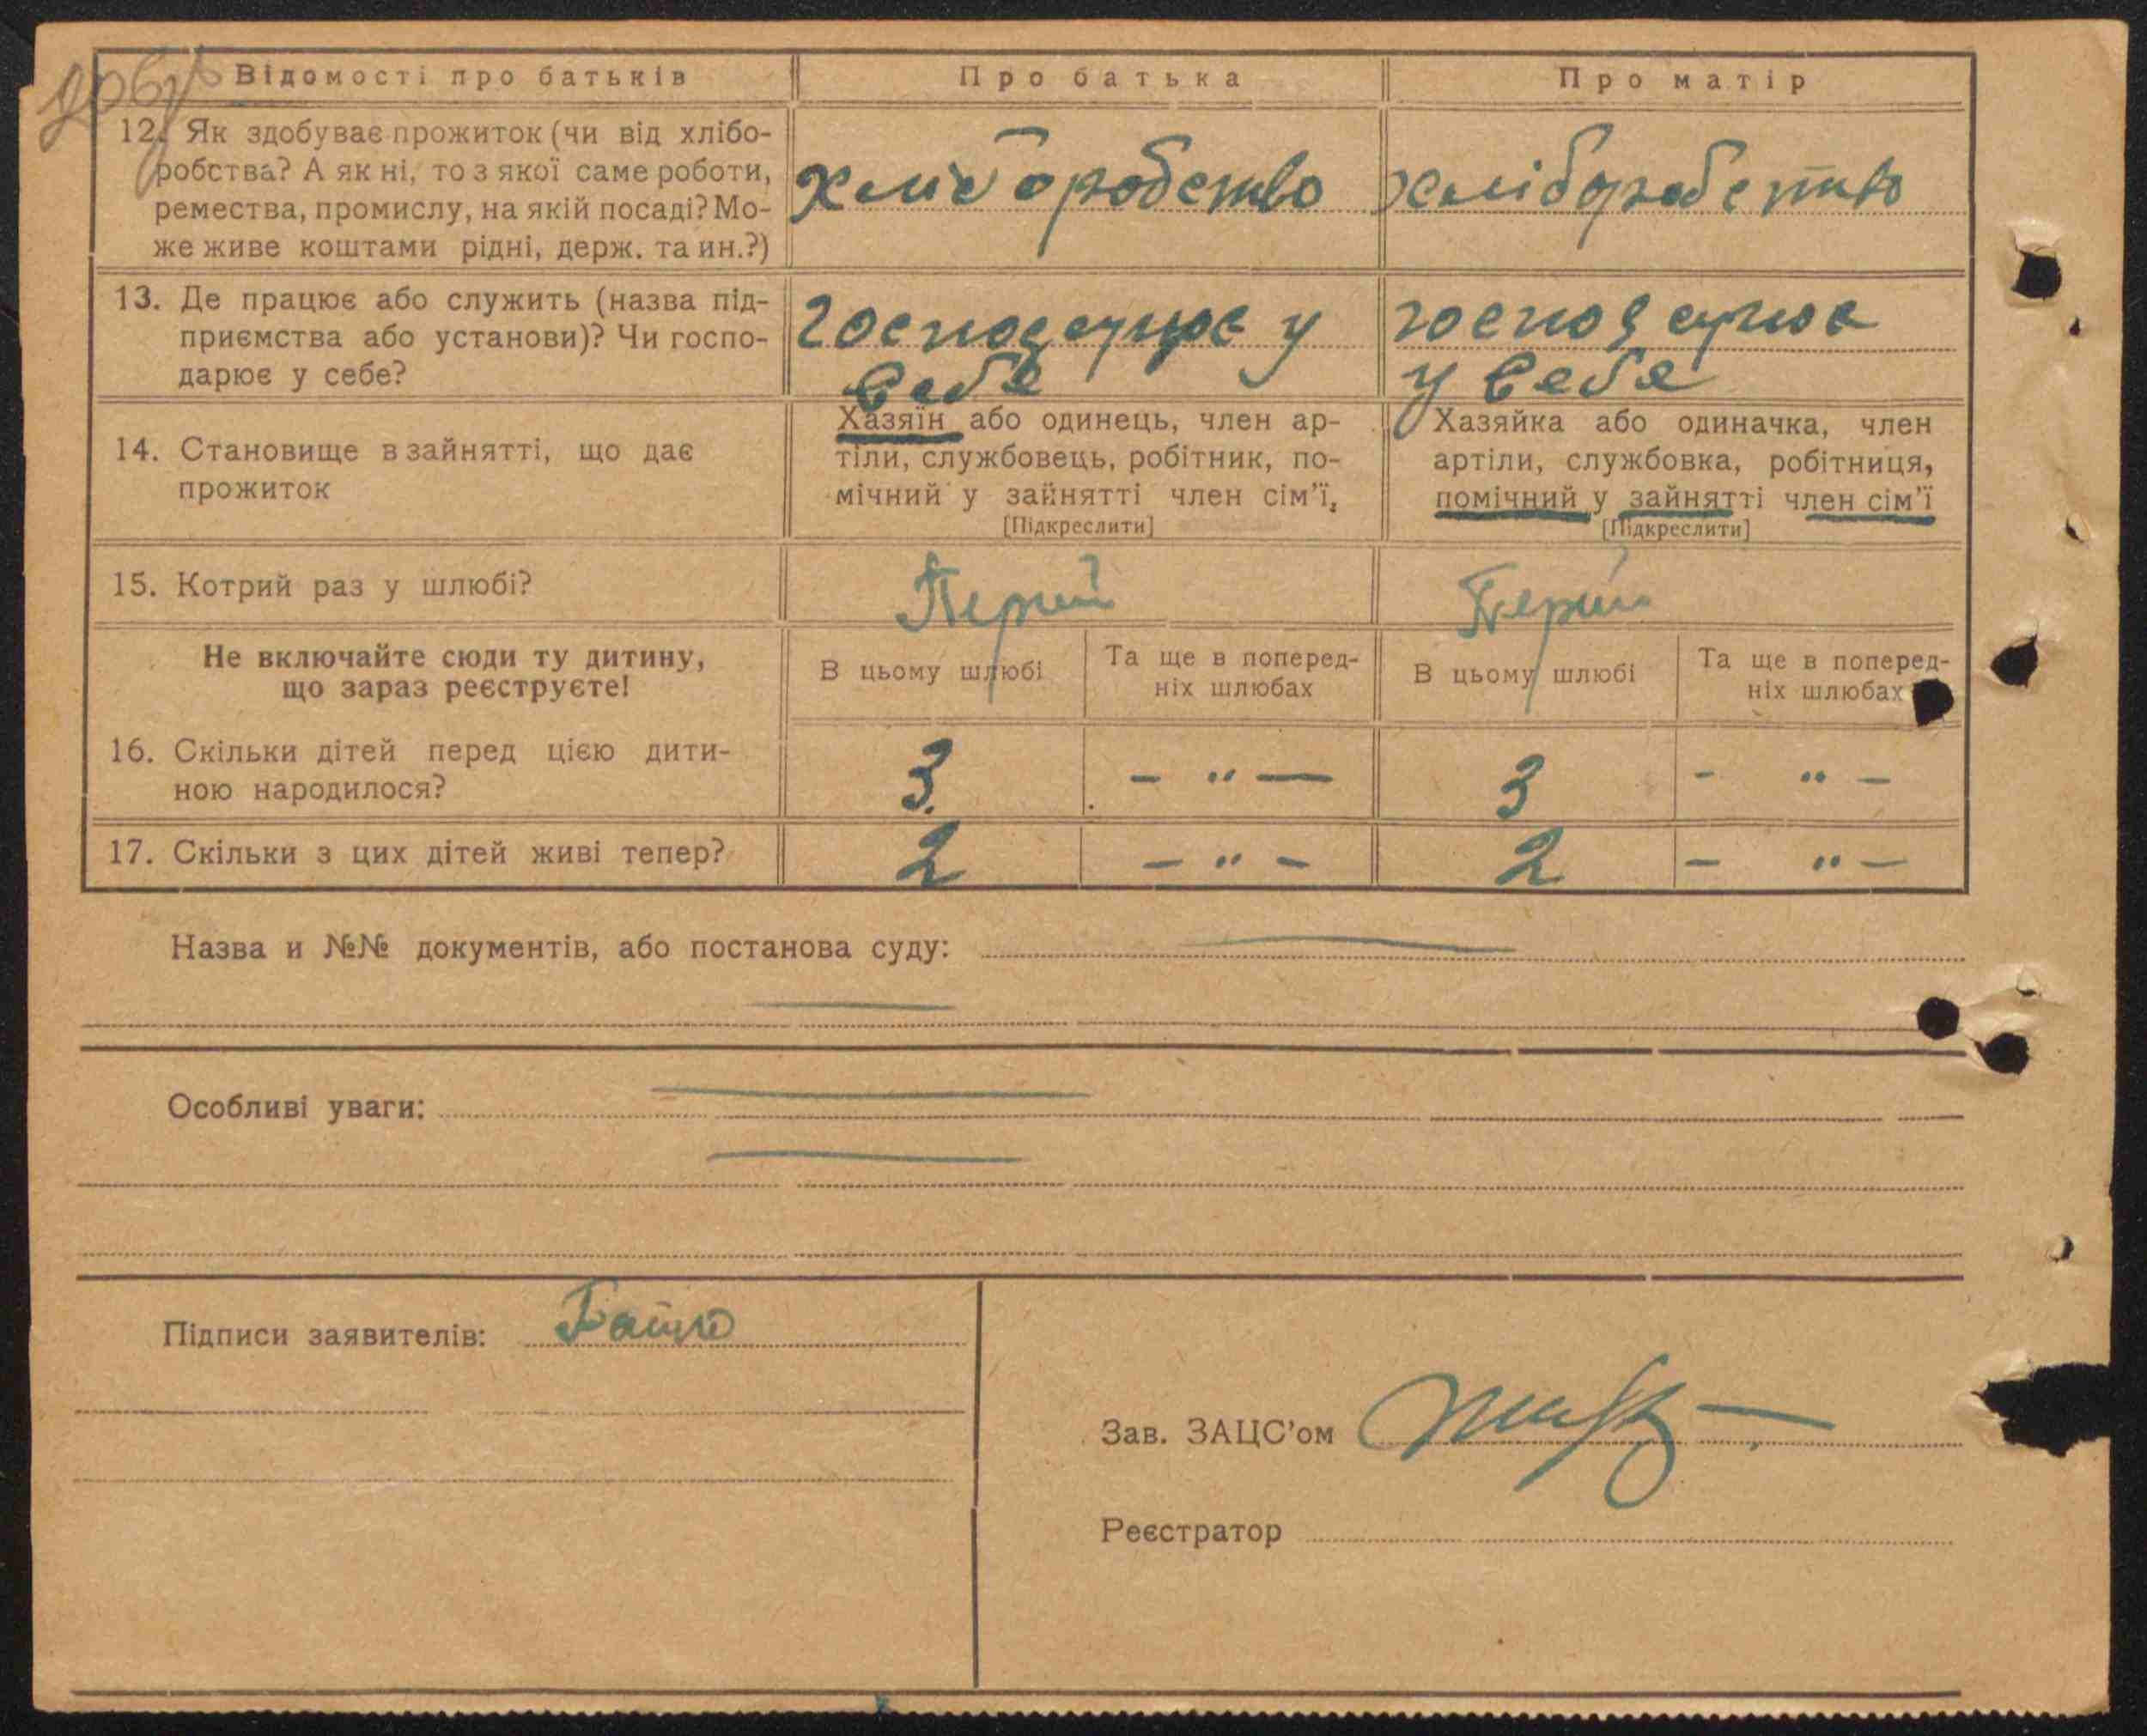 Відомості про батьків
Про батька
Про матір
12. Як здобуває прожиток (чи від хлібо-
робства? А як ні, то з якої саме роботи,
ремества, промислу, на якій посаді? Мо-
же живе коштами рідні, держ. та ин.?)
хліборобство
хліборобство
13. Де працює або служить (назва під-
приємства або установи)? Чи госпо-
дарює у себе?
господарює у
себе
господарює
у себе
14. Становище в зайнятті, що дає
прожиток
Хазяїн або одинець, член ар-
тіли, службовець, робітник, по-
мічний у зайнятті член сім'ї.
[Підкреслити]
Хазяйка або одиначка, член
артіли, службовка, робітниця,
помічний у зайнятті член сім'ї
[Підкреслити]
15. Котрий раз у шлюбі?
Перий
Перий
Не включайте сюди ту дитину,
що зараз реєструєте!
В цьому шлюбі
Та ще в поперед-
ніх шлюбах
В цьому шлюбі
Та ще в поперед-
ніх шлюбах
16. Скільки дітей перед цією дити-
ною народилося?
3
- „ -
3
- „ -
17. Скільки з цих дітей живі тепер?
2
- „ -
2
- „ -
Назва и №№ документів, або постанова суду:
Особливі уваги:
Підписи заявителів:
Зав. ЗАЦС'ом
Реєстратор